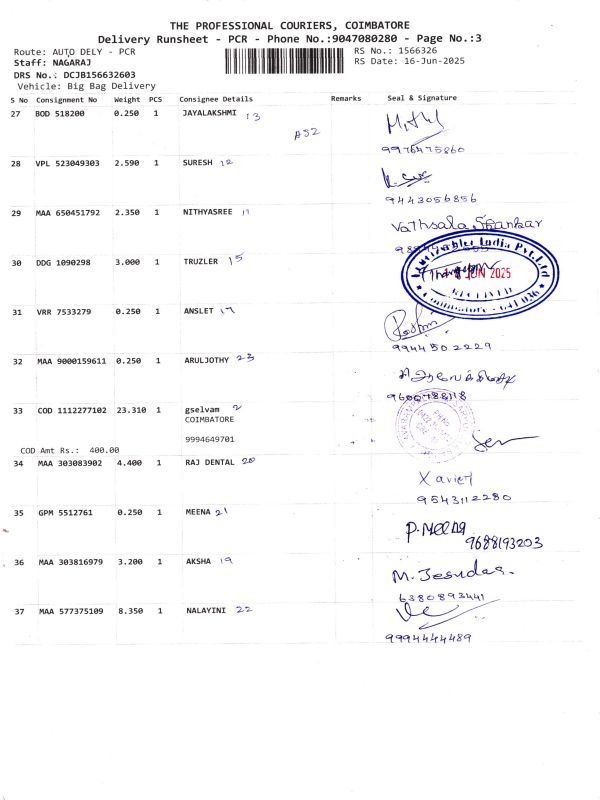 THE PROFESSIONAL COURIERS, COIMBATORE
Delivery Runsheet - PCR - Phone No.:9047080280 - Page No.:3
Route: AUTO DELY - PCR RS No.: 1566326
Staff: NAGARAJ RS Date: 16-Jun-2025
DRS No.: DCJB156632603
Vehicle: Big Bag Delivery
S No Consignment No Weight PCS Consignee Details Remarks Seal & Signature
27 BOD 518200 0.250 1 JAYALAKSHMI 13
AS2
9976475860
28 VPL 523049303 2.590 1 SURESH 12
9443056856
29 MAA 650451792 2.350 1 NITHYASREE 11
Vathsala Shankar
30 DDG 1090298 3.000 1 TRUZLER 15
India Pvt. Ltd
JUN 2025
RECEIVED
Coimbatore - 641 036
31 VRR 7533279 0.250 1 ANSLET 17
9944502229
32 MAA 9000159611 0.250 1 ARULJOTHY 23
9600788118
33 COD 1112277102 23.310 1 gselvam 2
COIMBATORE
9994649701
COD Amt Rs.: 400.00
34 MAA 303083902 4.400 1 RAJ DENTAL 20
Xavier
9543112280
35 GPM 5512761 0.250 1 MEENA 21
P. Meena
9688193203
36 MAA 303816979 3.200 1 AKSHA 19
M. Jesudas.
6380893441
37 MAA 577375109 8.350 1 NALAYINI 22
9994444489